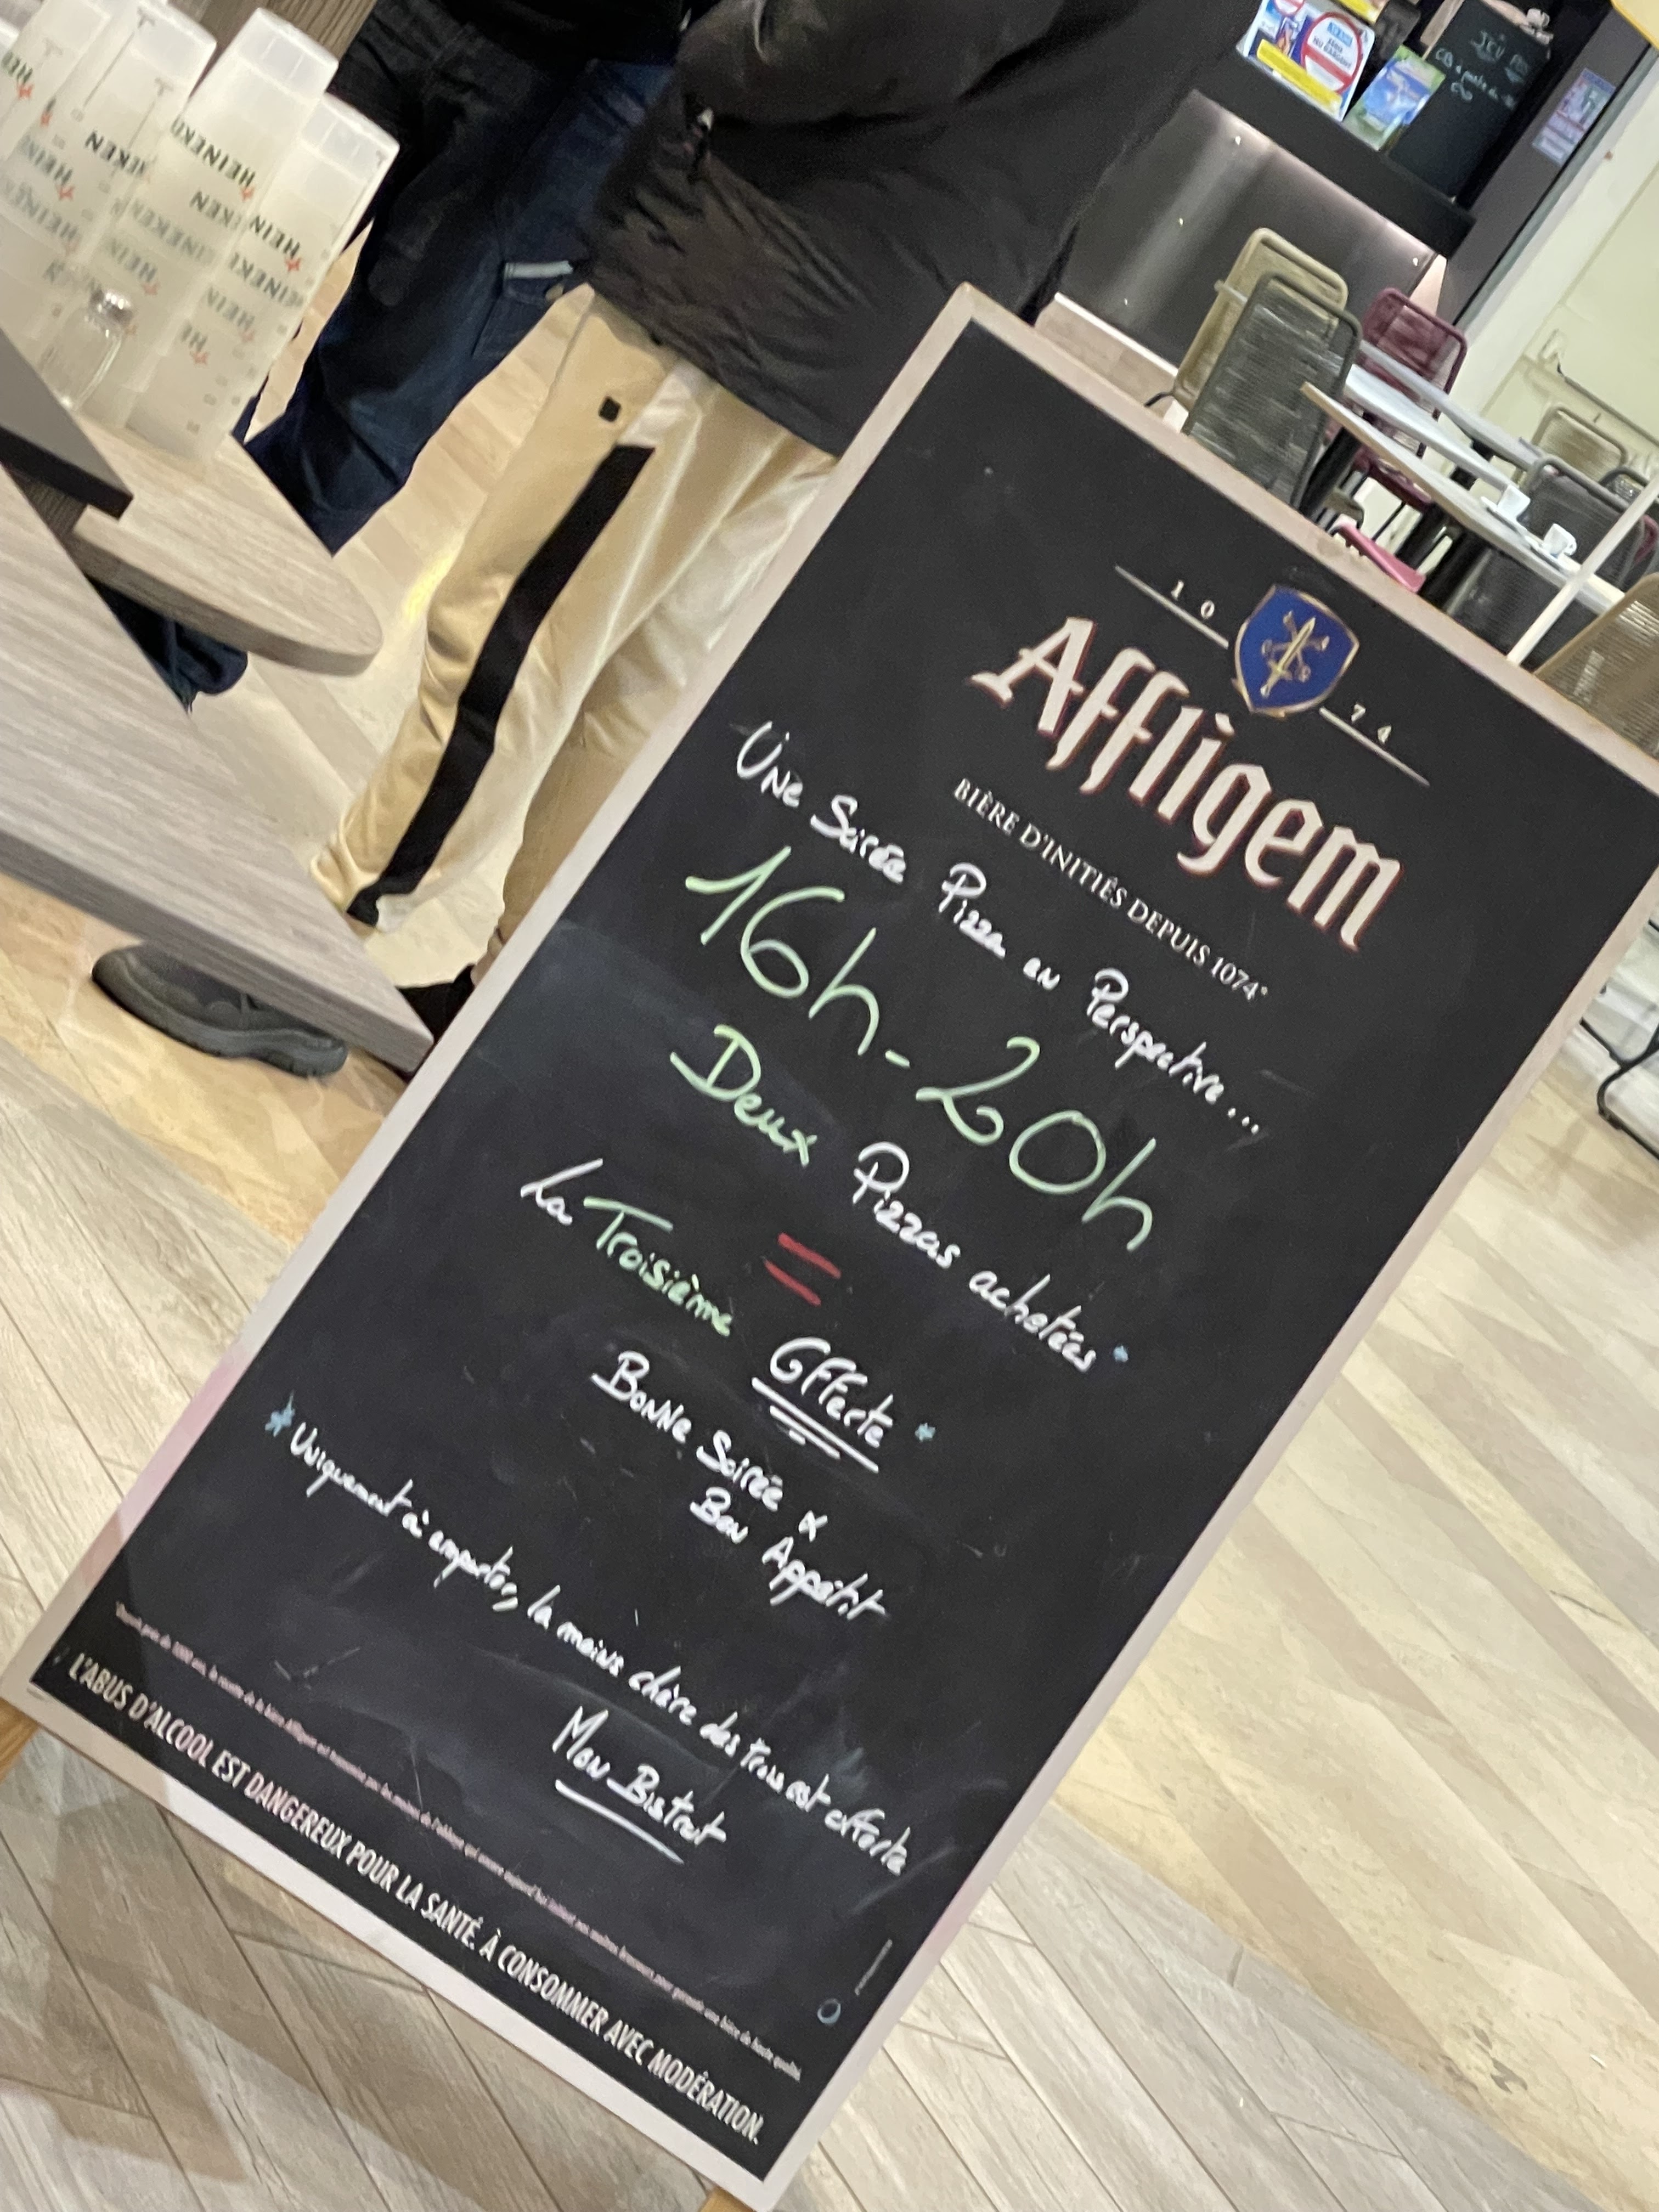 10 74
Affligem
BIÈRE D'INITIÉS DEPUIS 1074*
Une Soirée Pizza en Perspective...
16h-20h
Deux Pizzas achetées*
=
La Troisième Offerte*
Bonne Soirée &
Bon Appétit
*Uniquement à emporter, la moins chère des trois est offerte
Mon Bistrot
L'ABUS D'ALCOOL EST DANGEREUX POUR LA SANTÉ. À CONSOMMER AVEC MODÉRATION.
HEINEKEN